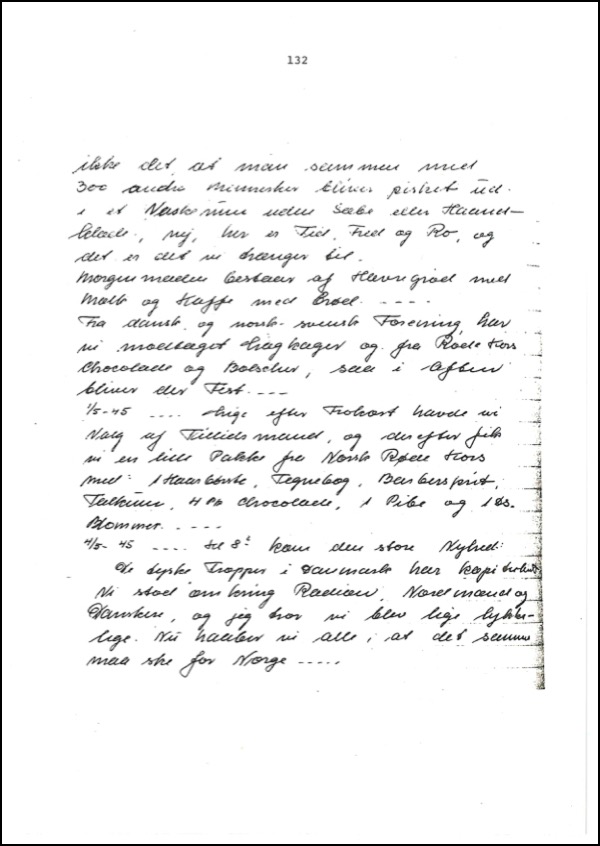 132
ikke det, at man sammen med
300 andre Mennesker bliver pisket ud
i et Vaskerum uden Sæbe eller Haand-
klæde, nej, her er Tid, Fred og Ro, og
det er det vi trænger til.
Morgenmaden bestaar af Havregrød med
Mælk og Kaffe med Brød. ----
Fra dansk og norsk-svensk Forening har
vi modtaget Lagkager og fra Røde Kors
Chocolade og Bolscher, saa i Aften
bliver der Fest. ---
1/5-45 .... Lige efter Frokost havde vi
Valg af Tillidsmand, og derefter fik
vi en lille Pakke fra Norsk Røde Kors
med: 1 Haarbørste, Tegnebog, Barbersprit,
Talkum, 4 Pk Chocolade, 1 Pibe og 1 Ds.
Blommer. ----
4/5-45 .... Kl 8 kom den store Nyhed:
De tyske Tropper i Danmark har kapituleret
Vi stod omkring Radioen, Nordmænd og
Danskere, og jeg tror vi blev lige lykke-
lige. Nu haaber vi alle, at det samme
maa ske for Norge -----